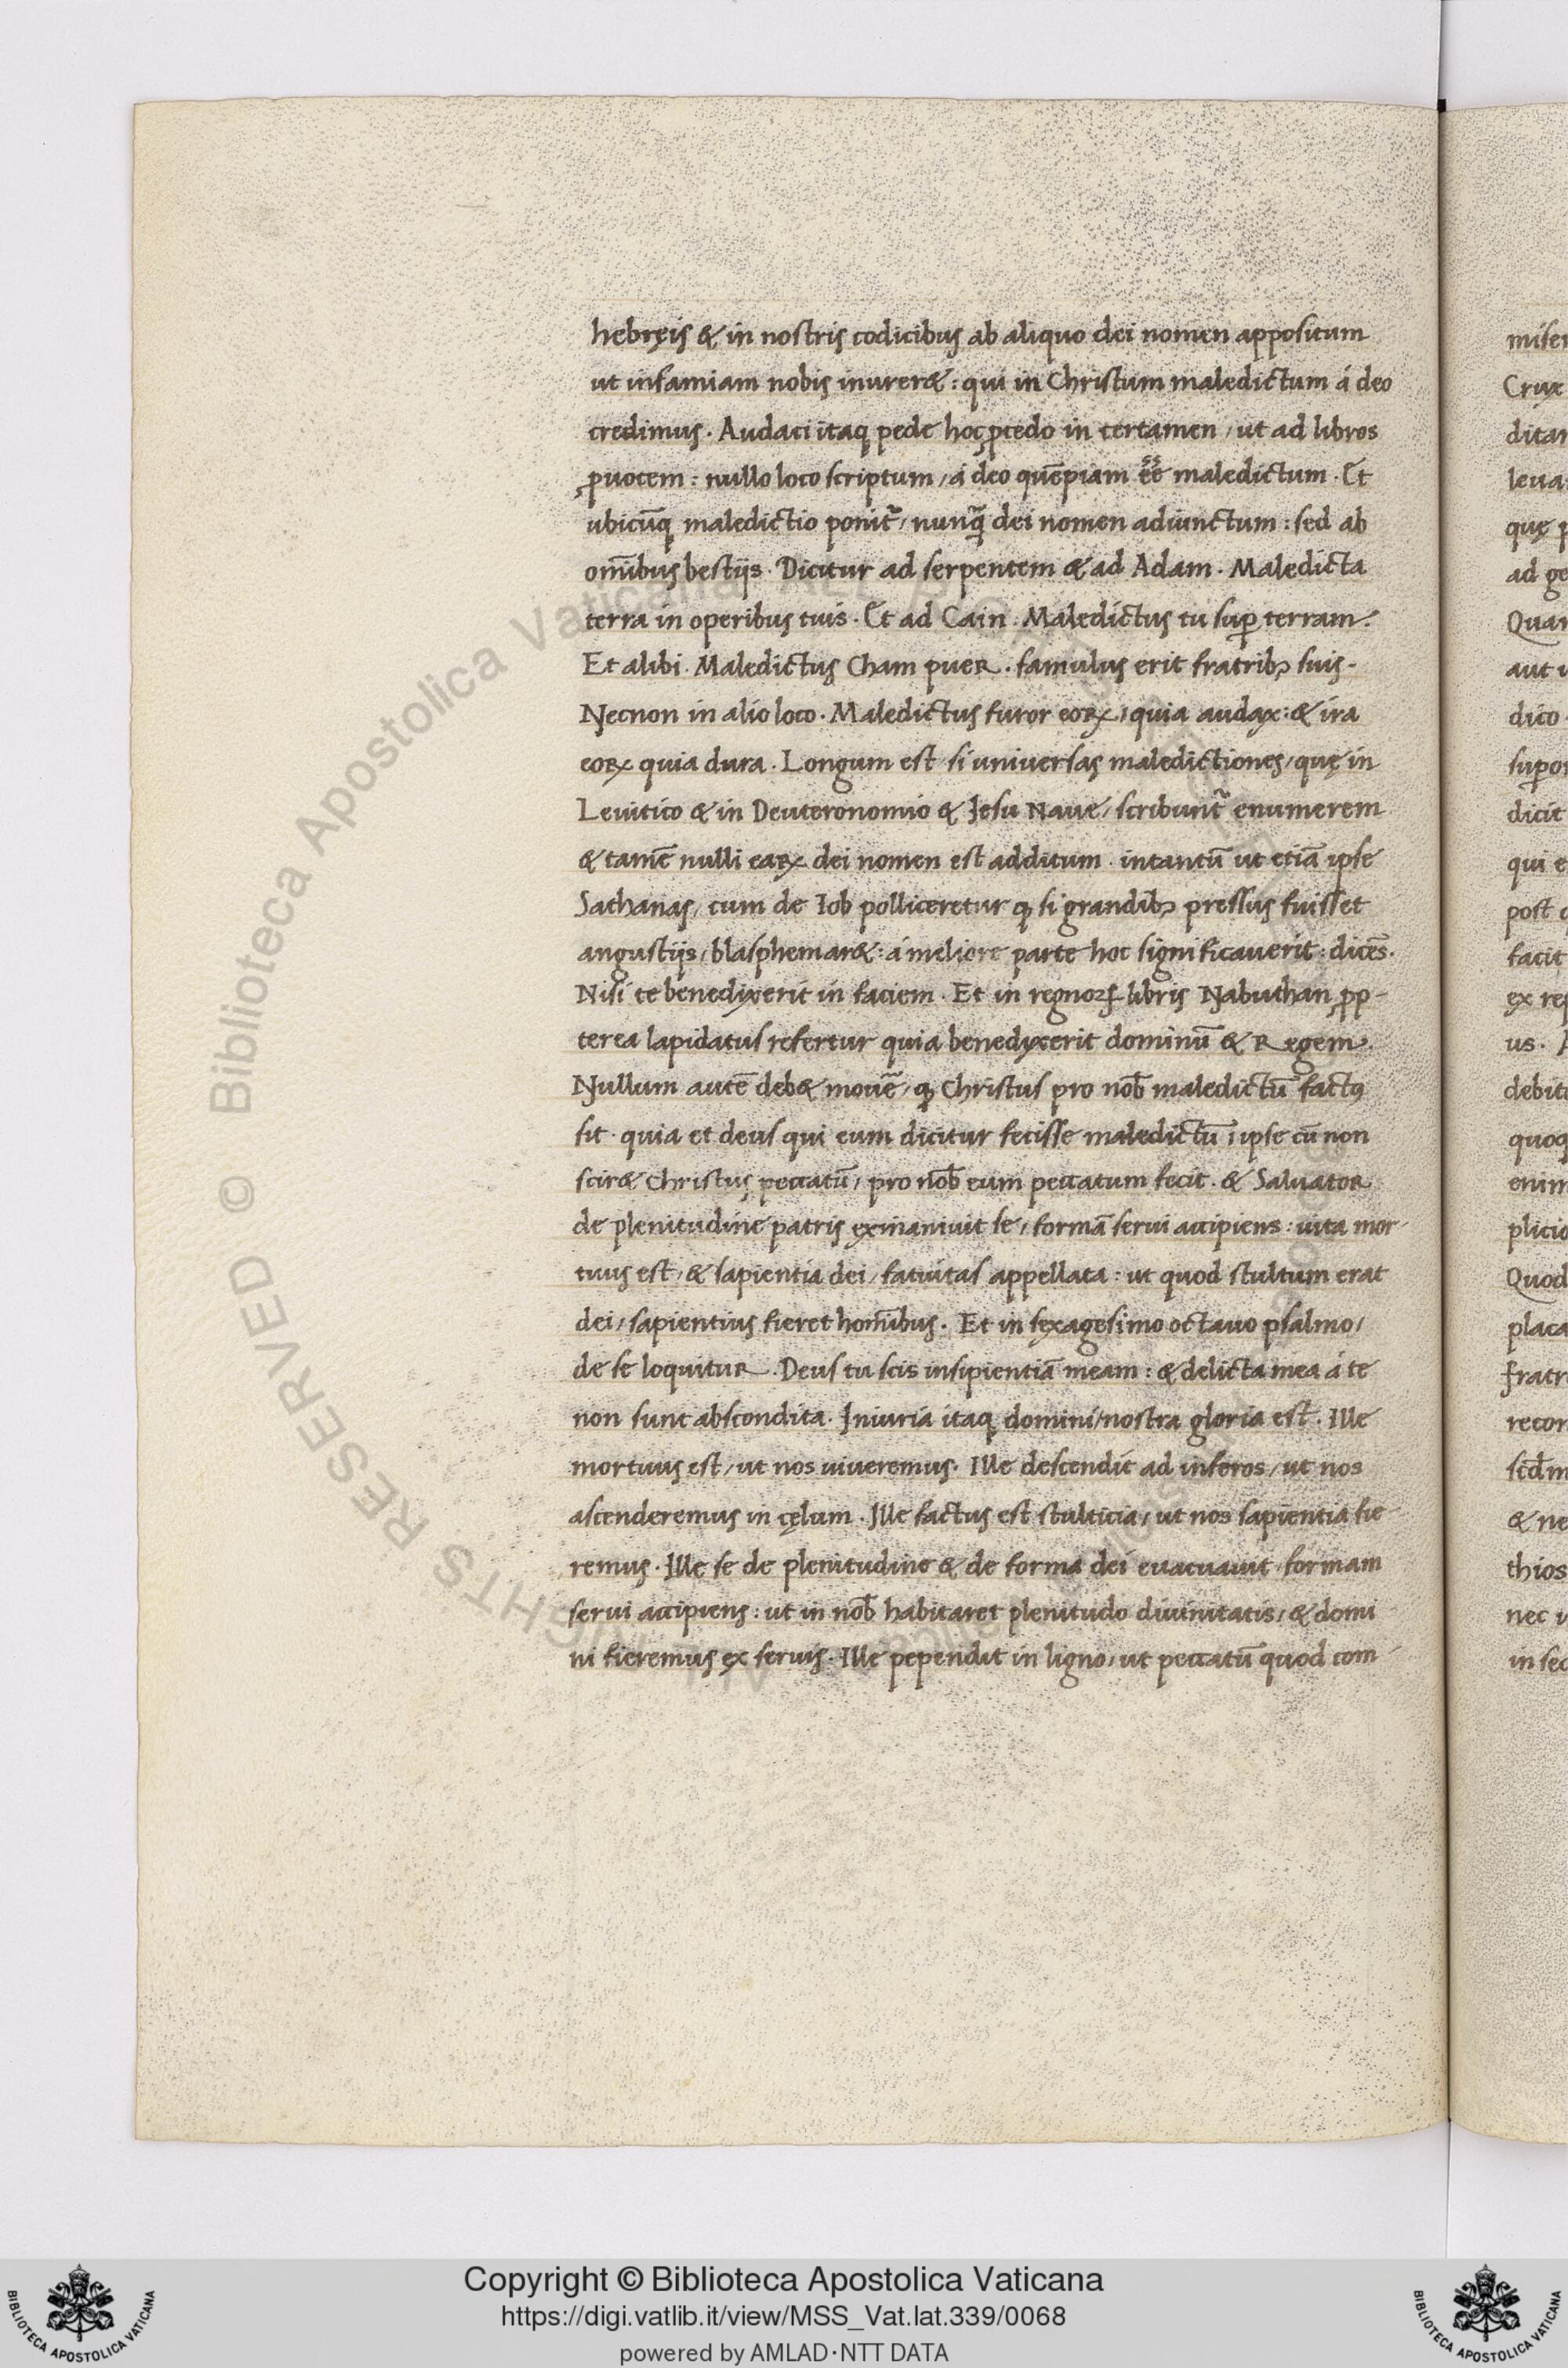 hebręis & in nostris codicibus ab aliquo dei nomen appositum
ut infamiam nobis inurer&: qui in Christum maledictum á deo
credimus. Audaci itaqꝫ pede hoc ꝓcedo in certamen, ut ad libros
ꝓuocem: nullo loco scriptum, á deo quēpiam eē maledictum. Et
ubicūqꝫ maledictio ponit̃, nunq̃ dei nomen adiunctum: sed ab
om̄ibus bestijs. Dicitur ad serpentem & ad Adam. Maledicta
terra in operibus tuis. Et ad Cain. Maledictus tu suꝑ terram.
Et alibi. Maledictus Cham puer. famulus erit fratribꝫ suis.
Necnon in alio loco. Maledictus furor eoꝝ, quia audax: & ira
eoꝝ quia dura. Longum est si uniuersas maledictiones, quę in
Leuitico & in Deuteronomio & Jesu Naue, scribunt̃ enumerem
& tamē nulli eaꝝ dei nomen est additum. intantū ut etiā ipse
Sathanas, cum de Iob polliceretur qꝫ si grandibꝫ pressus fuisset
angustijs, blasphemar&: á meliore parte hoc significauerit: dicēs.
Nisi te benedixerit in faciem. Et in regnoꝝ libris Nabuthan ꝓp-
terea lapidatus refertur quia benedixerit dominū & Regem.
Nullum autē deb& mouē, qꝫ Christus pro nob̄ maledictū factꝰ
sit. quia et deus qui eum dicitur fecisse maledictū, ipse cū non
scir& Christus peccatū, pro nob̄ eum peccatum fecit. & Saluator
de plenitudine patris exinaniuit se, formā serui accipiens: uita mor-
tuus est, & sapientia dei, fatuitas appellata: ut quod stultum erat
dei, sapientius fieret hom̄ibus. Et in sexagesimo octauo psalmo,
de se loquitur. Deus tu scis insipientiā meam: & delicta mea á te
non sunt abscondita. Iniuria itaqꝫ domini, nostra gloria est. Ille
mortuus est, ut nos uiueremus. Ille descendit ad inferos, ut nos
ascenderemus in cęlum. Ille factus est stulticia, ut nos sapientia fie-
remus. Ille se de plenitudine & de forma dei euacuauit formam
serui accipiens: ut in nob̄ habitaret plenitudo diuinitatis, & domi-
ni fieremus ex seruis. Ille pependit in ligno, ut peccatū quod com-
miser
Crux
ditar
leua
quę p
ad ge
Quar
aut u
dico
supor
dicit
qui e
post
facit
ex re
us. A
debit
quoq
enim
plicio
Quod
placa
fratr
recor
scd̄m
& ne
thios
nec u
in sec
ALL RIGHTS RESERVED © Biblioteca Apostolica Vaticana
Copyright © Biblioteca Apostolica Vaticana
https://digi.vatlib.it/view/MSS_Vat.lat.339/0068
powered by AMLAD·NTT DATA
BIBLIOTECA APOSTOLICA VATICANA
BIBLIOTECA APOSTOLICA VATICANA